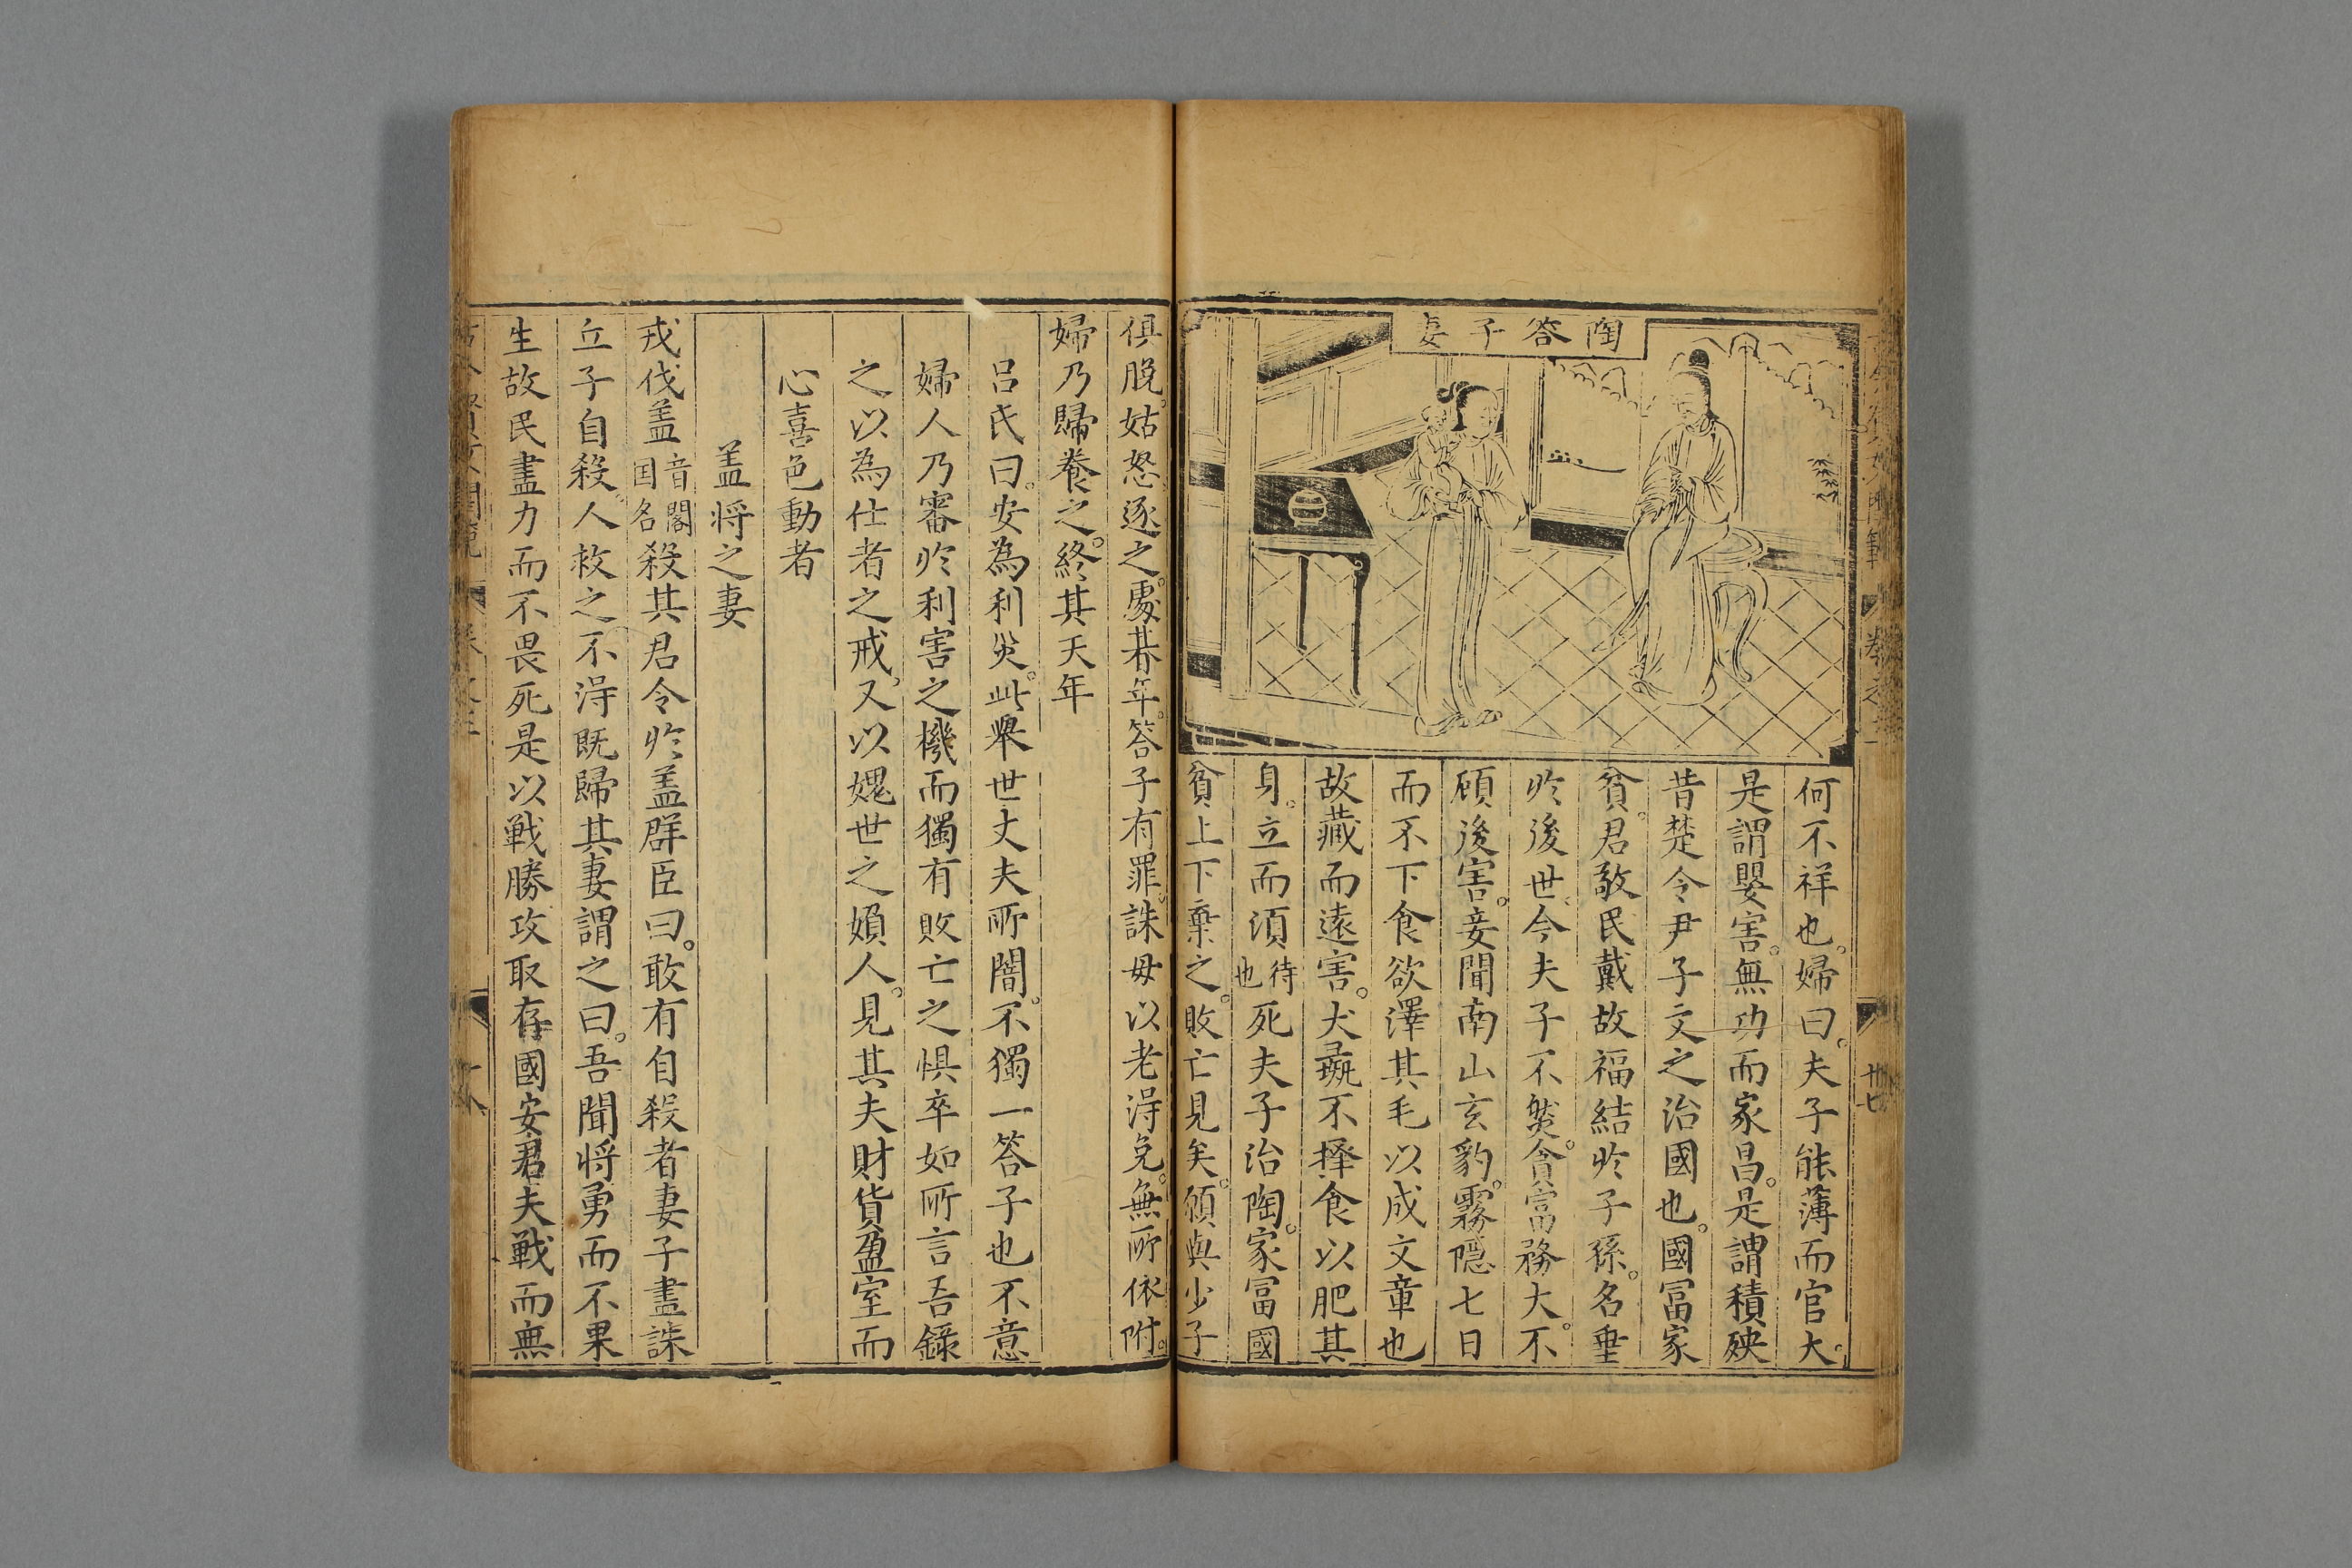 陶答子妻
何不祥也。婦曰。夫子能薄而官大。
是謂嬰害。無功而家昌。是謂積殃
昔楚令尹子文之治國也。國富家
貧。君敬民戴故福結於子孫。名垂
於後世。今夫子不然。貪富務大。不
顧後害。妾聞南山玄豹。霧隱七日
而不下食欲澤其毛以成文章也
故藏而遠害。犬彘不擇食以肥其
身。立而須待也死夫子治陶。家富國
貧上下棄之。敗亡見矣。傾與少子
卷之
廿七
俱脫。姑怒逐之。處朞年。答子有罪。誅母以老淂免。無所依附。
婦乃歸養之。終其天年
呂氏曰。安為利災。此舉世丈夫所闇。不獨一答子也不意
婦人乃審於利害之機而獨有敗亡之惧卒如所言吾錄
之以為仕者之戒。又以媿世之嬪人。見其夫財貨盈室而
心喜色動者
盖将之妻
戎伐盖音閣国名殺其君令於盖群臣曰。敢有自殺者妻子盡誅
立子自殺。人救之不淂既歸其妻謂之曰。吾聞将勇而不果
生故民盡力而不畏死是以戰勝攻取存國安君夫戰而無